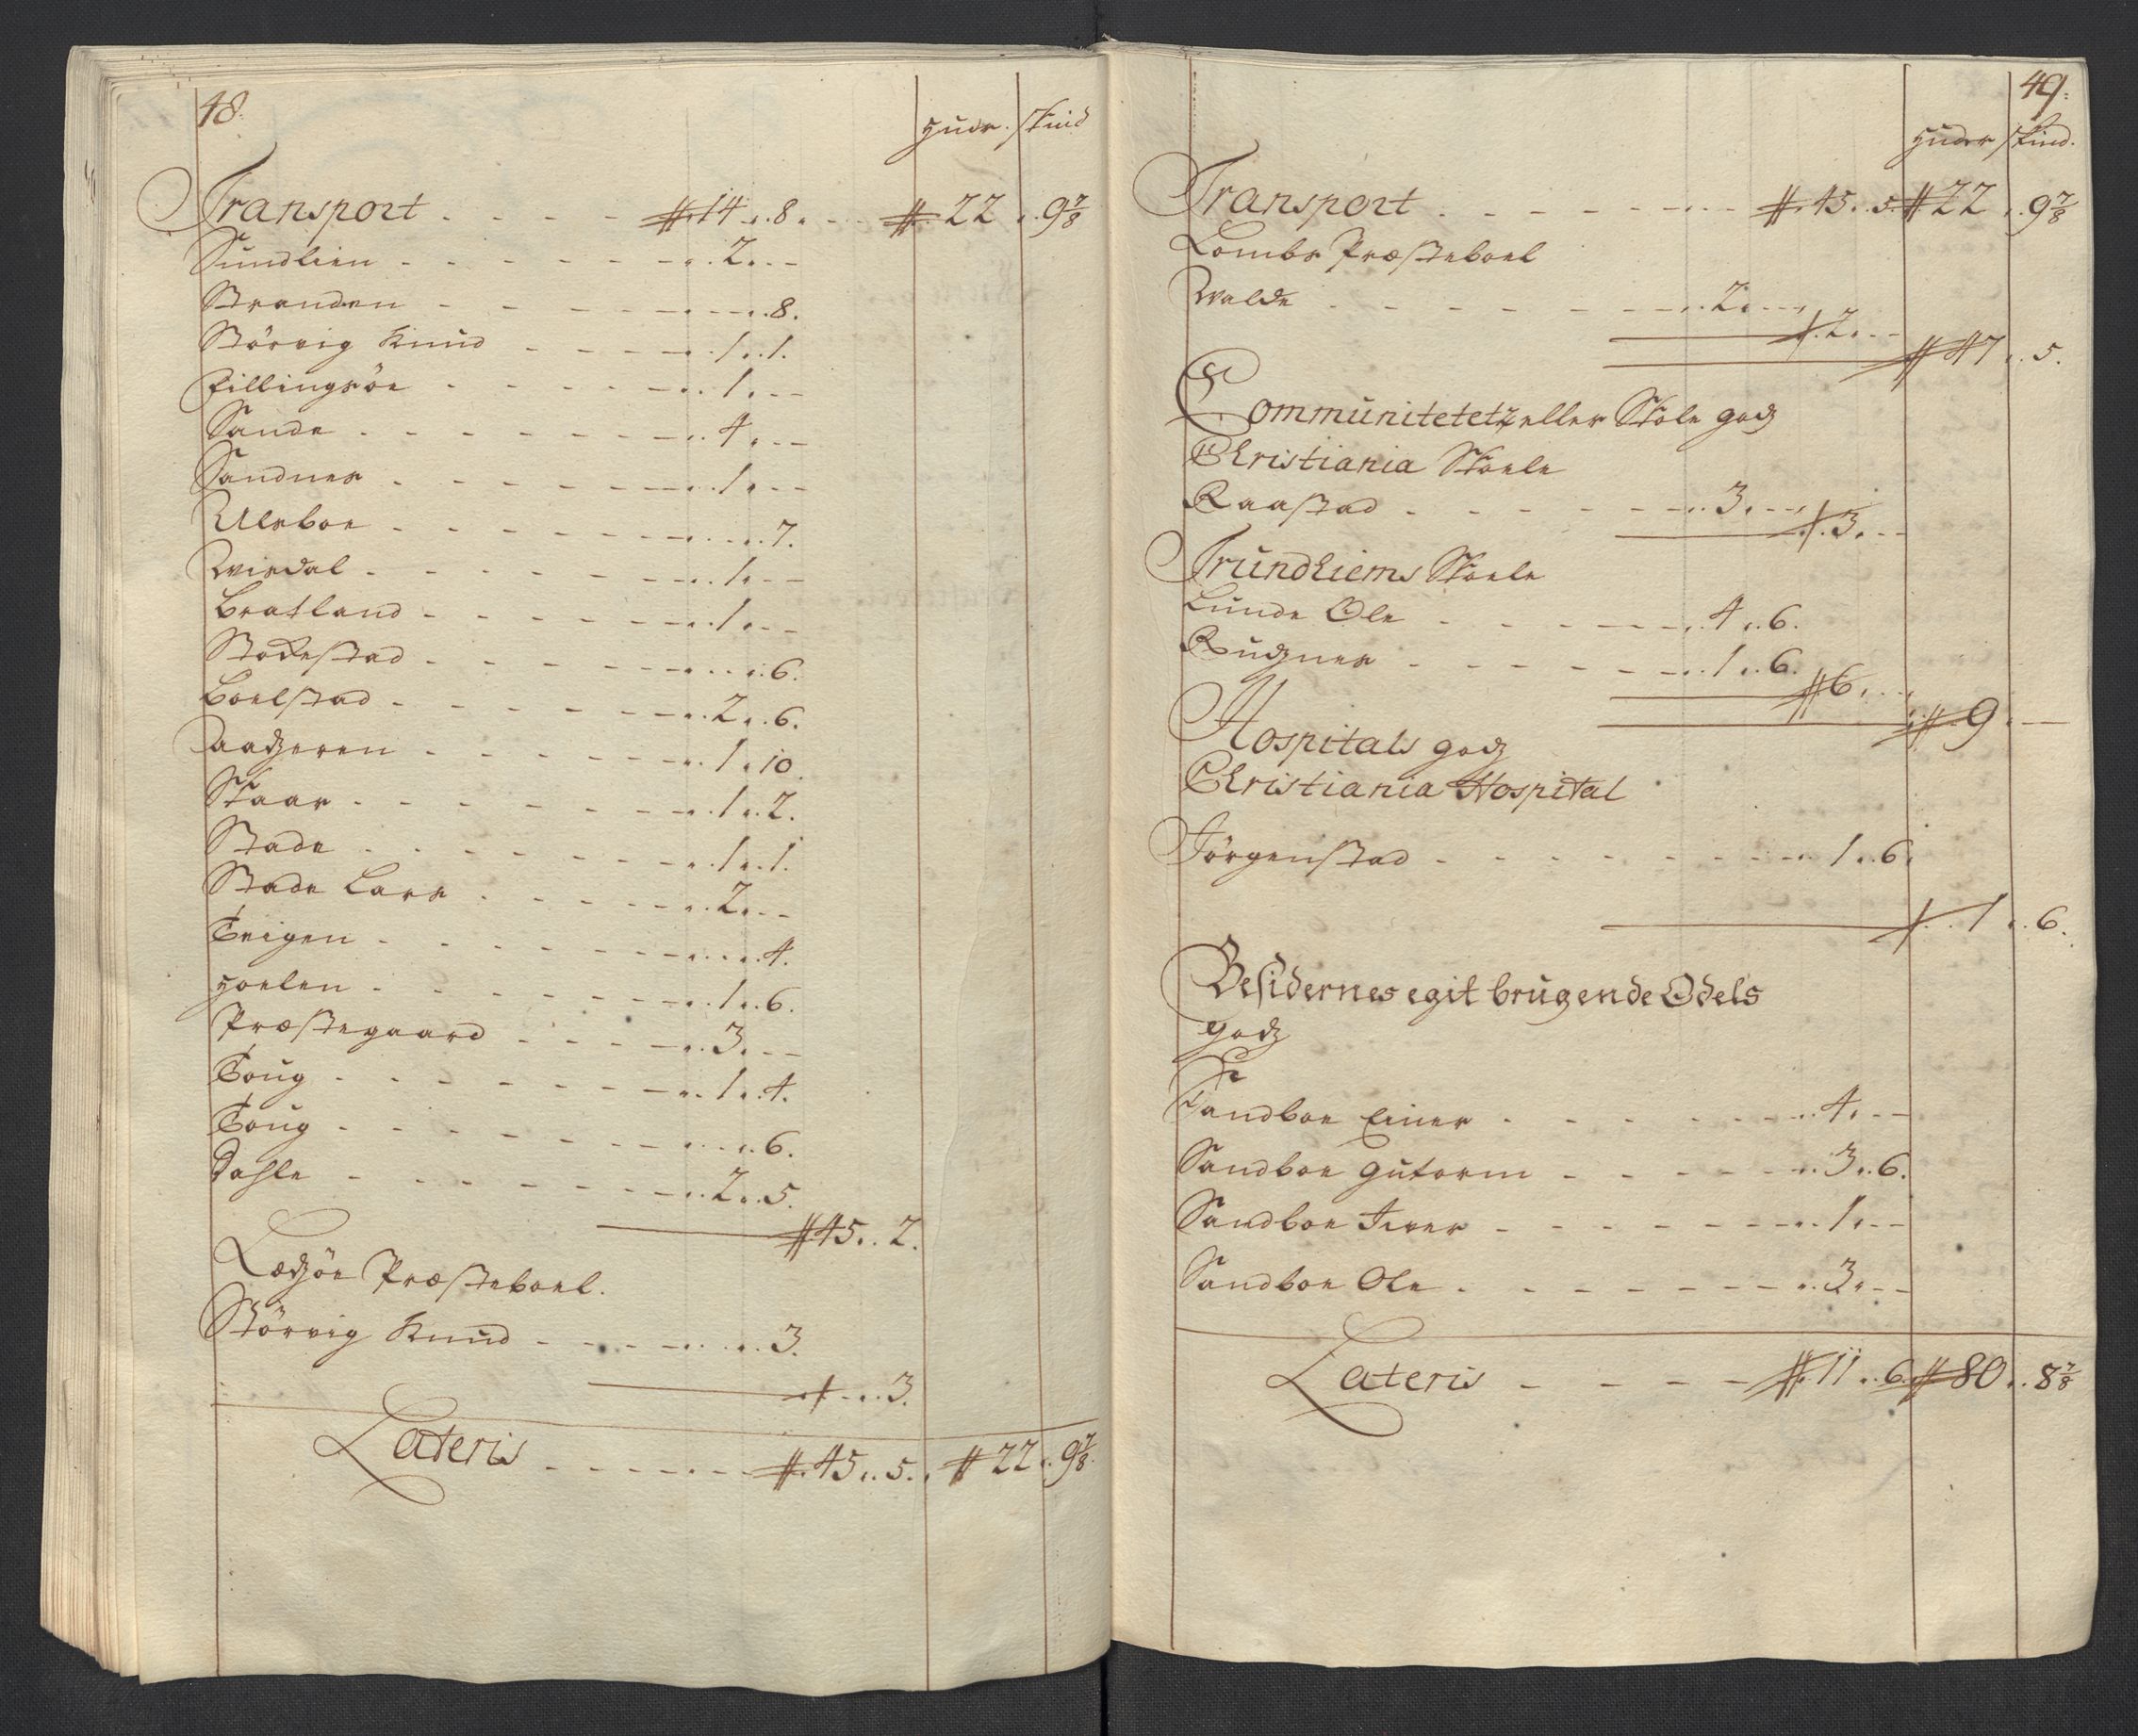 48.
Huder. Skind
Transport . - - - - # 14 .. 8. - - - # 22 .. 9 7/8
Sundlien . - - - - - - .. 2. - -
Stranden - - - - - - - - .. 8.
Störvig Knud - - - - - .. 1 .. 1.
Fillingsöe - - - - - .. 1. - -
Sande . - - - - - - .. 4. - -
Sandnes . - - - - - .. 1. - -
Ulsboe . - - - - - - - .. 7.
Wisdal . - - - - - - .. 1. - -
Bratland - - - - - - .. 1. - -
Stockstad . - - - - - - - .. 6.
Boelstad . - - - - - .. 2 .. 6.
Aadzeren . - - - - - .. 1 . 10.
Skaar . - - - - - - .. 1 .. 2.
Stade . - - - - - - .. 1 .. 1.
Stade Lars . - - - - .. 2. - -
Teigen . - - - - - - - .. 4.
Hoelen . - - - - - - .. 1 .. 6.
Præstegaard . - - - - .. 3. - -
Toug . - - - - - - .. 1 .. 4.
Toug . - - - - - - - .. 6.
Dahle - - - - - - .. 2 .. 5.
# 45 .. 2.
Ledzöe Præsteboel.
Störvig Knud - - - - - .. 3.
- .. 3.
Lateris . - - - - - # 45 .. 5. # 22 .. 9 7/8
49.
Huder Skind.
Transport . - - - - - - # 45 .. 5. # 22 .. 9 7/8
Lombs Præsteboel
Walde . - - - - - .. 2. - -
2. - -
# 47 .. 5.
Communitetetz eller Skole godz
Christiania Skoele
Raastad . - - - - .. 3. - -
3. - -
Trundhiems Skoele
Lunde Ole - - - - - .. 4 .. 6.
Rudznes . - - - - - .. 1 .. 6.
# 6. - -
# 9. -
Hospitals godz
Christiania Hospital
Jörgenstad - - - - - - - .. 1 .. 6.
1 .. 6.
Besidernes egit brugende Odels
godz
Sandboe Einer . - - - - - .. 4. - -
Sandboe Gutorm . - - - - .. 3 .. 6.
Sandboe Iver - - - - - - .. 1. - -
Sandboe Ole . - - - - - - .. 3. - -
Lateris - - - - - # 11 .. 6. # 80 .. 8 7/8